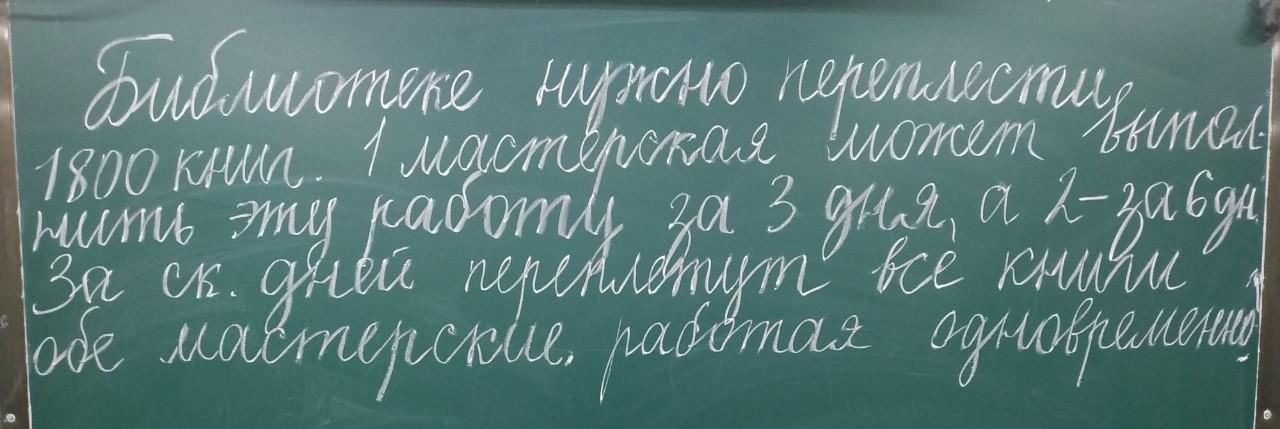 Библиотеке нужно переплести
1800 книг. 1 мастерская может выпол-
нить эту работу за 3 дня, а 2 - за 6 дн.
За ск. дней переплетут все книги
обе мастерские, работая одновременно?